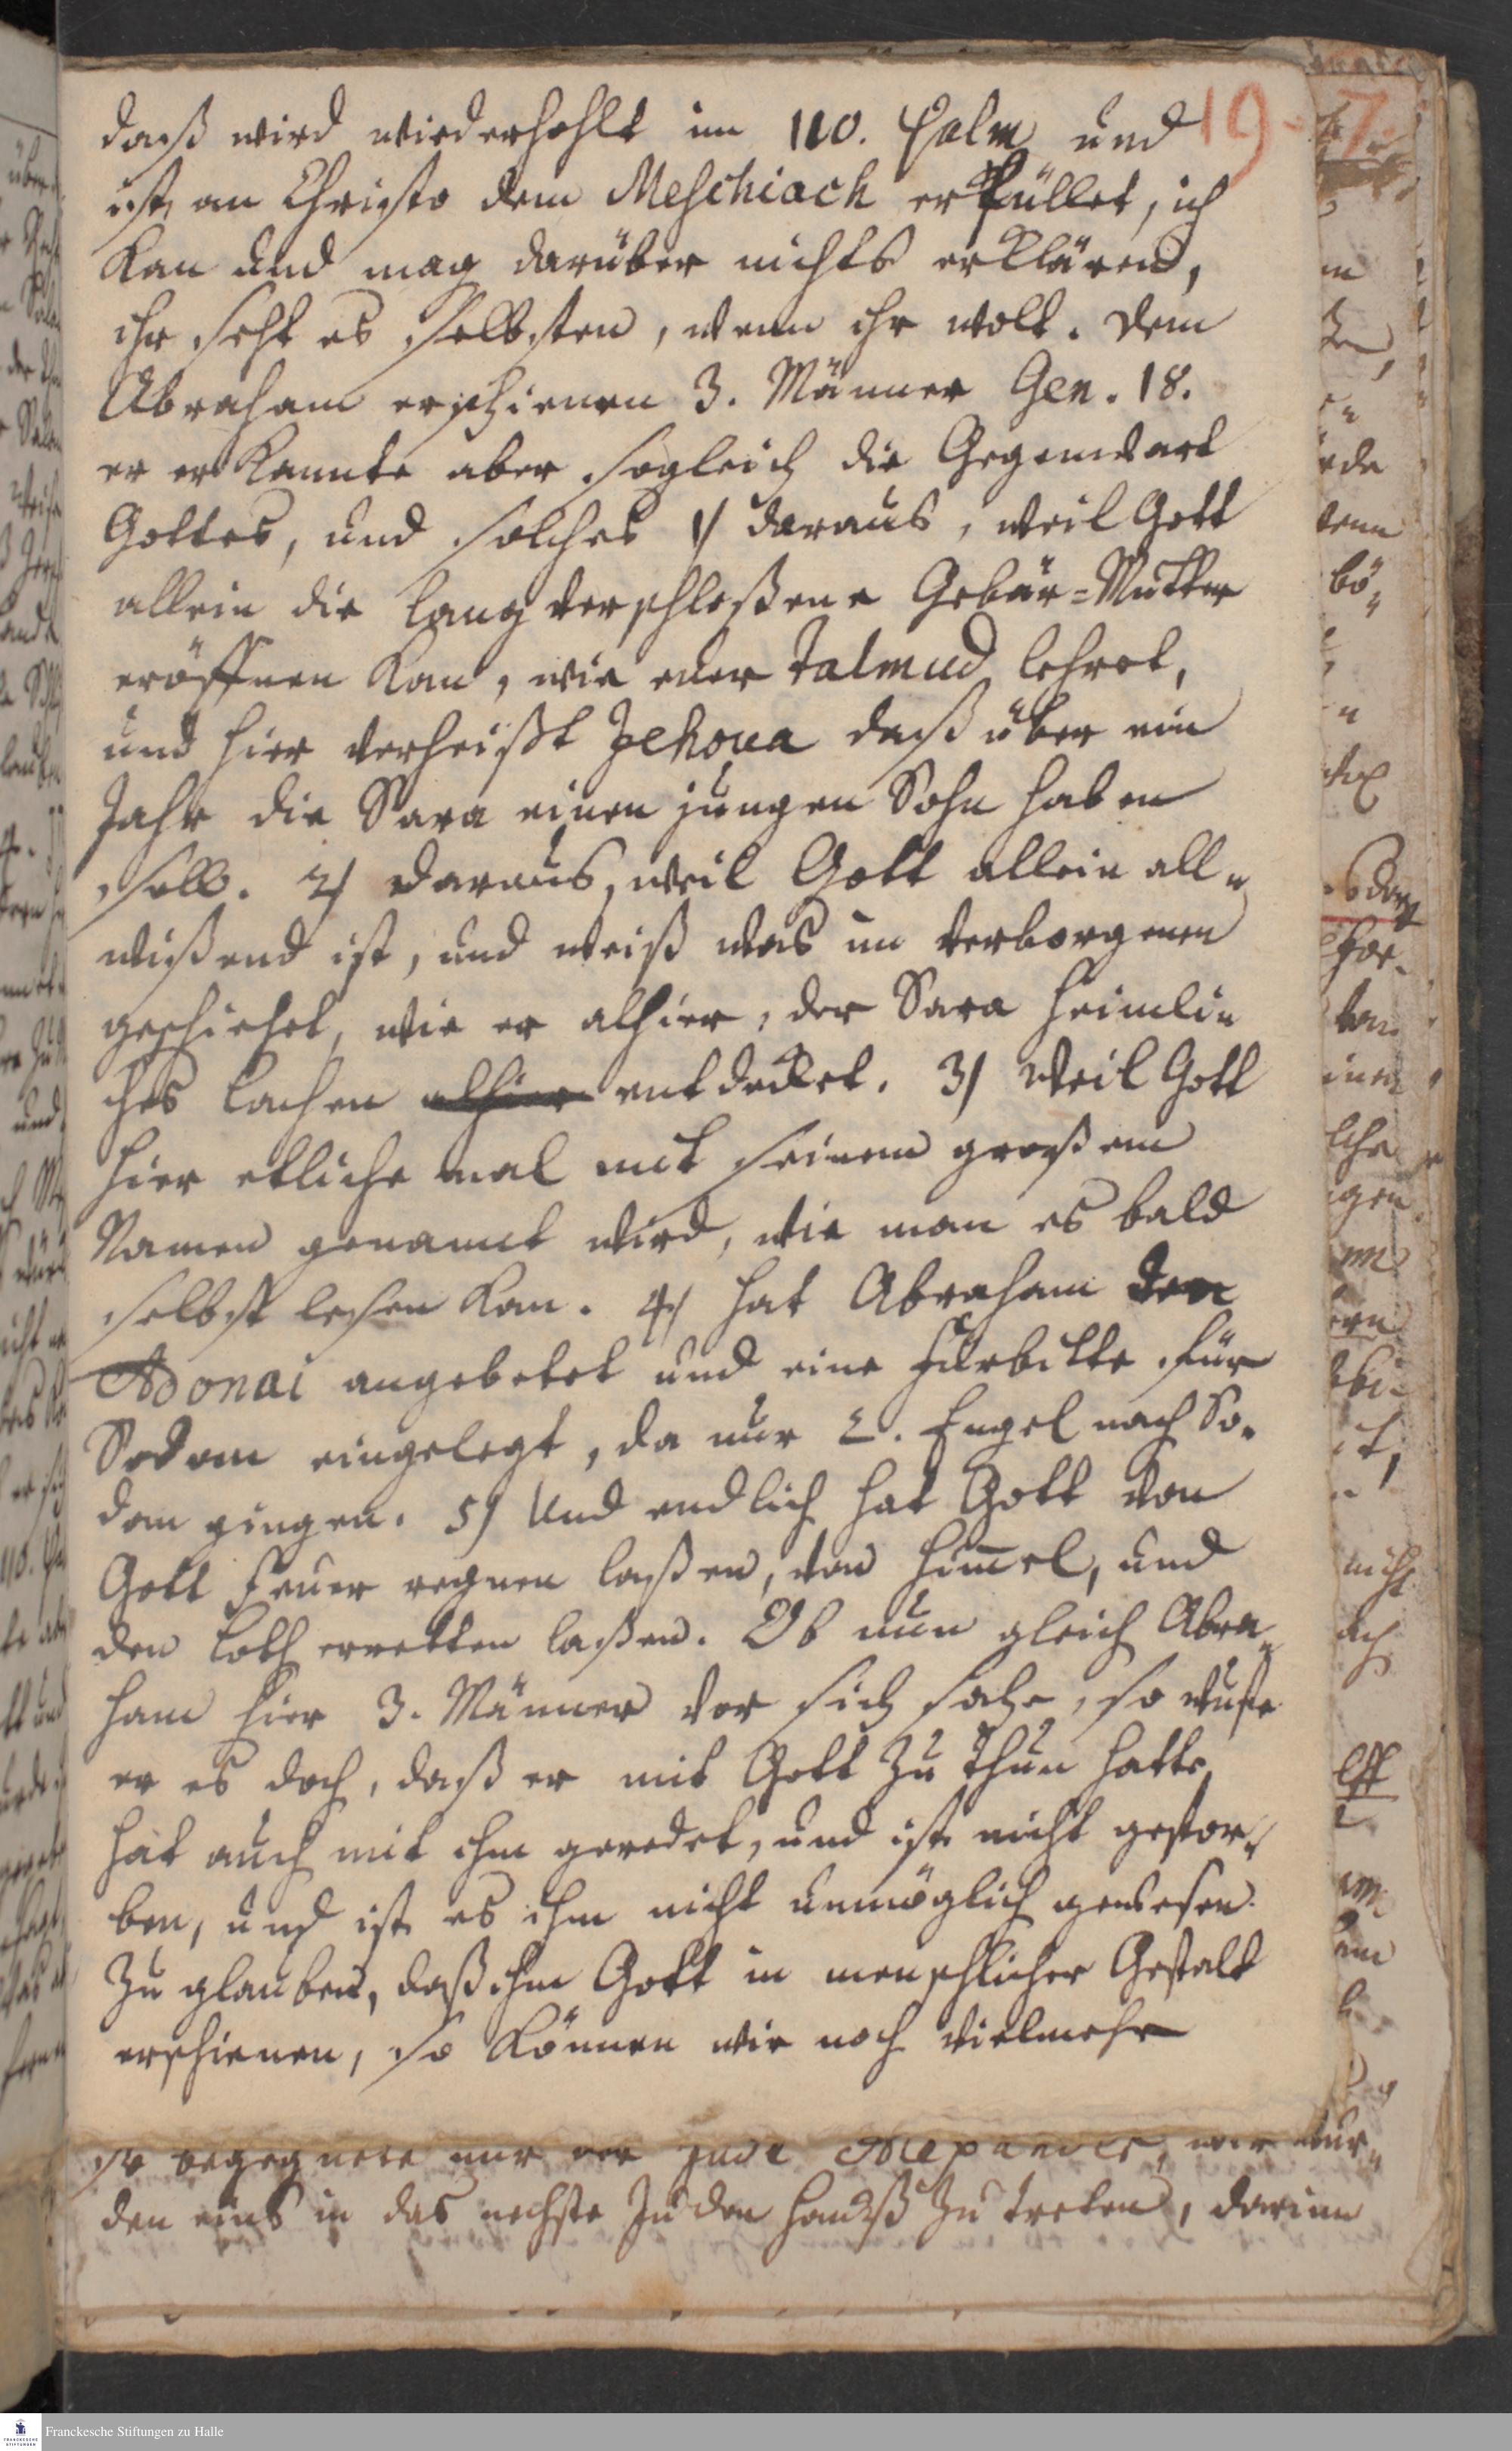 19.
daß wird wiederhohlt im 110. Psalm und
ist an Christo dem Meschiach erfüllet, ich
kan und mag darüber nichts erklären,
ihr seht es selbsten, wenn ihr wolt. Dem
Abraham erschienen 3. Männer Gen. 18.
er erkannte aber sogleich die Gegenwart
Gottes, und solches 1/ daraus, weil Gott
allein die lang verschloßene Gebär=Mutter
eröffnen kan, wie euer Talmud lehret,
und hier verheißt Jehova daß über ein
Jahr die Sara einen jungen Sohn haben
soll. 2/ daraus, weil Gott allein all„
wißend ist, und weiß was im verborgenen
geschiehet, wie er alhier, der Sara heimli„
ches lachen alhier entdecket. 3/ Weil Gott
hier etliche mal mit seinem großem
Namen genannt wird, wie man es bald
selbst lesen kan. 4/ hat Abraham den
Adonai angebetet und eine Fürbitte für
Sodom eingelegt, da nur 2. Engel nach So„
dom gingen. 5/ Und endlich hat Gott von
Gott Feuer regnen laßen, von Himmel, und
den Loth erretten laßen. Ob nun gleich Abra„
ham hier 3. Männer vor sich sahe, so wuste
er es doch, daß er mit Gott zu thun hatte,
hat auch mit ihm geredet, und ist nicht gestor„
ben, und ist es ihm nicht unmöglich gewesen
zu glauben, daß ihm Gott in menschlicher Gestalt
erschienen, so können wir noch vielmehr
so begegnete mir der Jude Alexander, wir wur„
den eins in das nechste Juden Hauß zu treten, darinn
Franckesche Stiftungen zu Halle